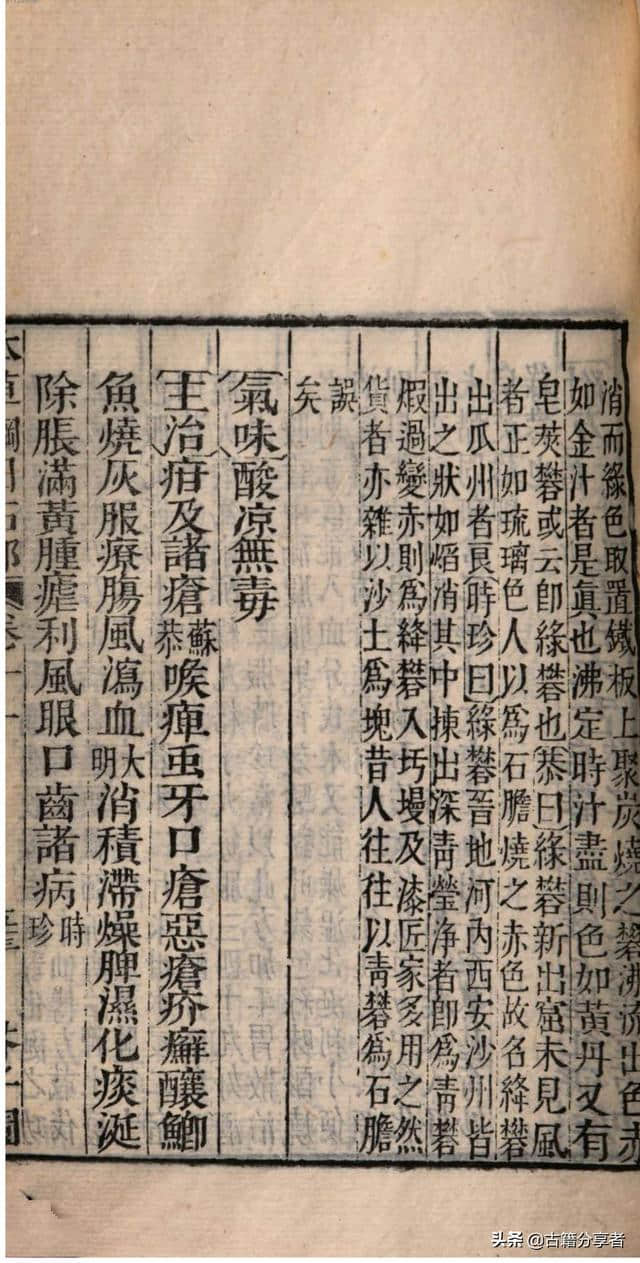 消而綠色取置鐵板上聚炭燒之礬沸流出色赤
如金汁者是眞也沸定時汁盡則色如黃丹又有
皂莢礬或云卽綠礬也恭曰綠礬新出窟未見風
者正如琉璃色人以爲石膽燒之赤色故名絳礬
出瓜州者良時珍曰綠礬晉地河內西安沙州皆
出之狀如焰消其中揀出深靑瑩淨者卽爲靑礬
煅過變赤則爲絳礬入圬墁及漆匠家多用之然
貨者亦雜以沙土爲塊昔人往往以靑礬爲石膽
誤
矣
氣味酸凉無毒
主治疳及諸瘡蘇恭喉痺虫牙口瘡惡瘡疥癬釀鯽
魚燒灰服療腸風瀉血大明消積滯燥脾濕化痰涎
除脹滿黃腫瘧利風眼口齒諸病時珍
頭条 @古籍分享者